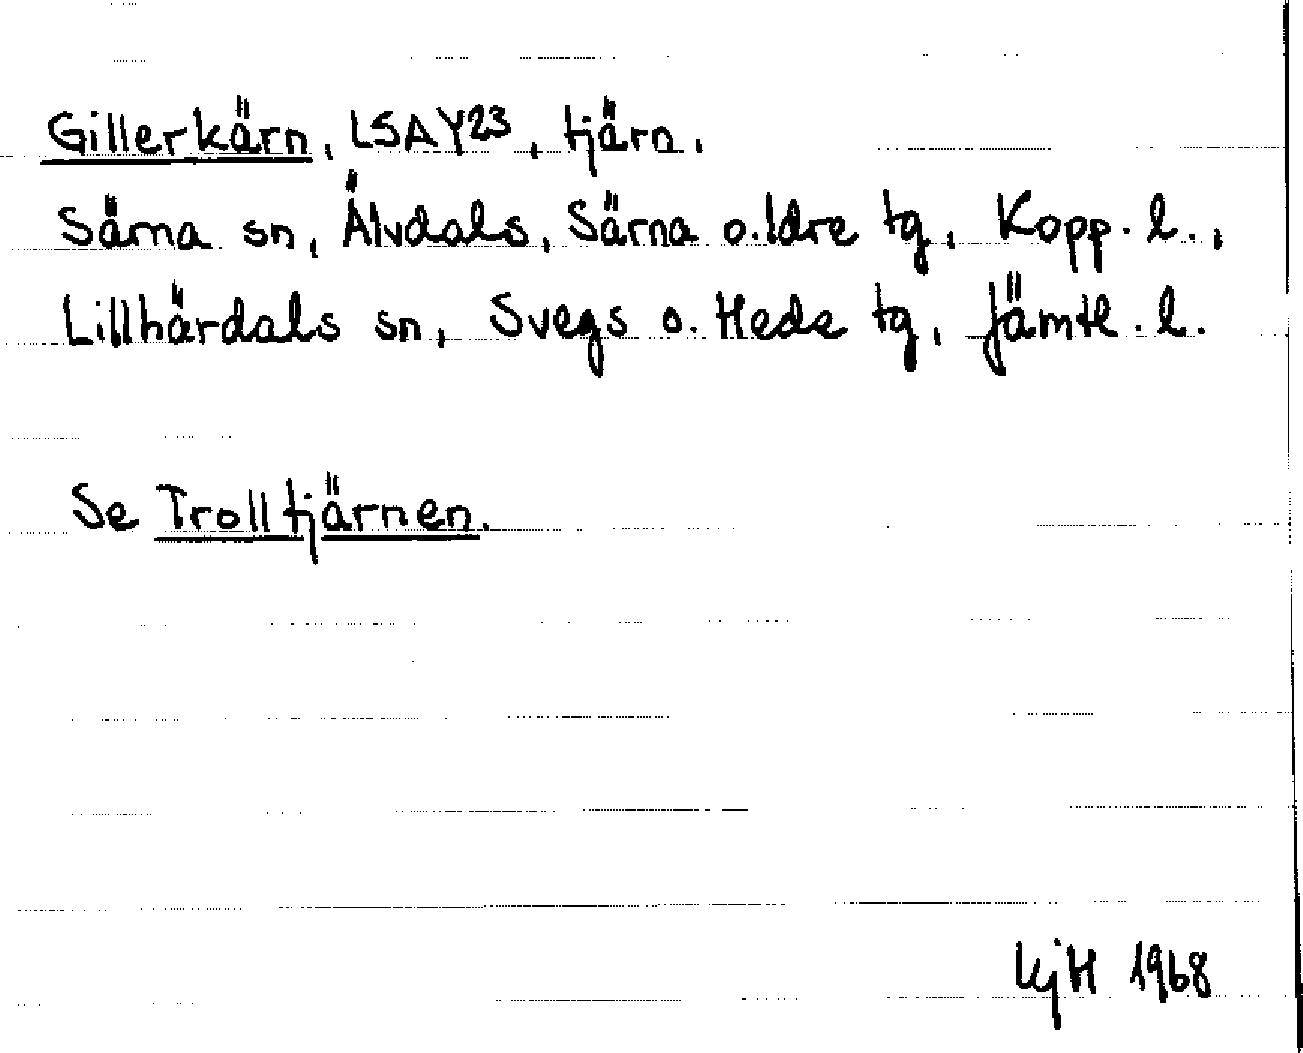 Gillerkärn, LSAY23, tjärn.
Särna sn, Älvdals, Särna o. Idre tg, Kopp. l.,
Lillhärdals sn, Svegs o. Hede tg, Jämtl. l.
Se Trolltjärnen.
KjH 1968